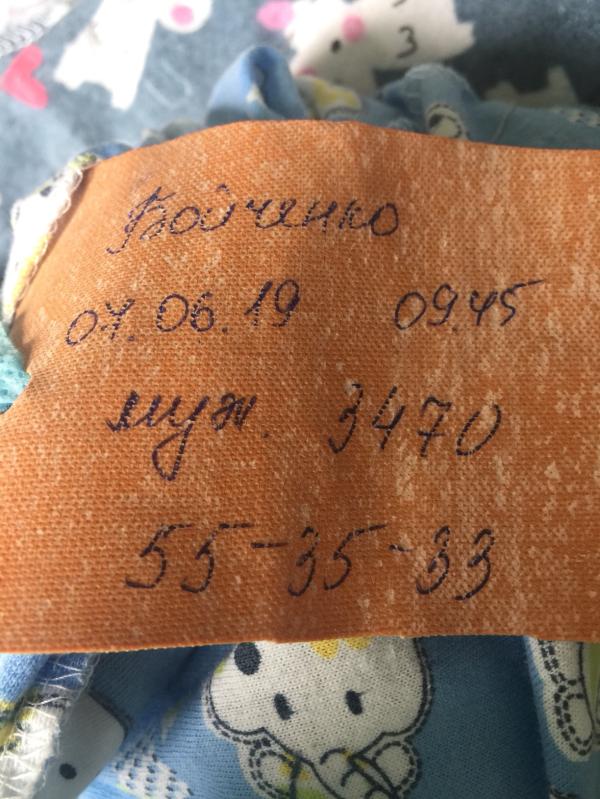 Бойченко
07.06.19 09.45
муж. 3470
55-35-33